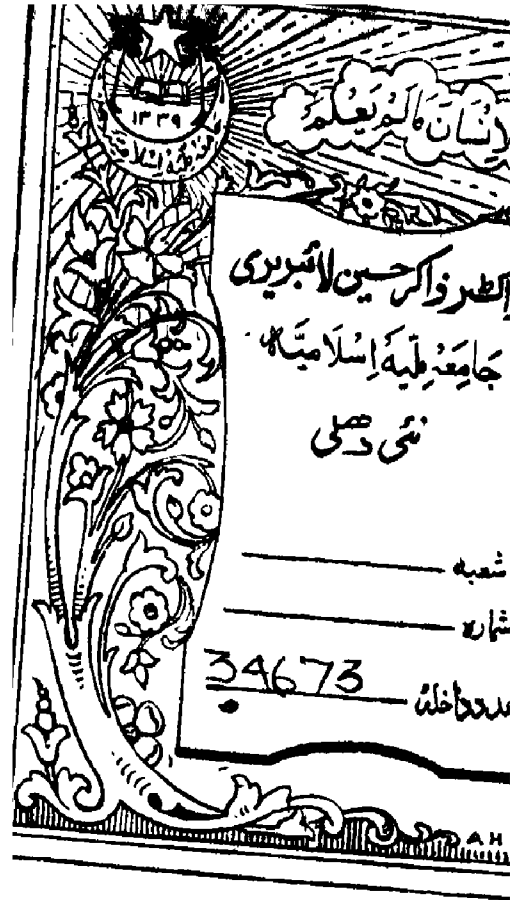 ۱۳۳۹
جامعہ ملیہ اسلامیہ
الانسان مالم يعلم
ڈاکٹر ذاکر حسین لائبریری
جامعہ ملیہ اسلامیہ
نئی دھلی
شعبہ
شمارہ
34673
عدد داخلہ
AH